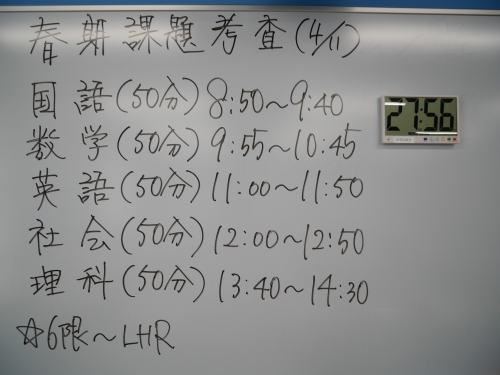 春期課題考査(4/11)
国語(50分)8:50～9:40
数学(50分)9:55～10:45
英語(50分)11:00～11:50
社会(50分)12:00～12:50
理科(50分)13:40～14:30
☆6限～LHR
27:56